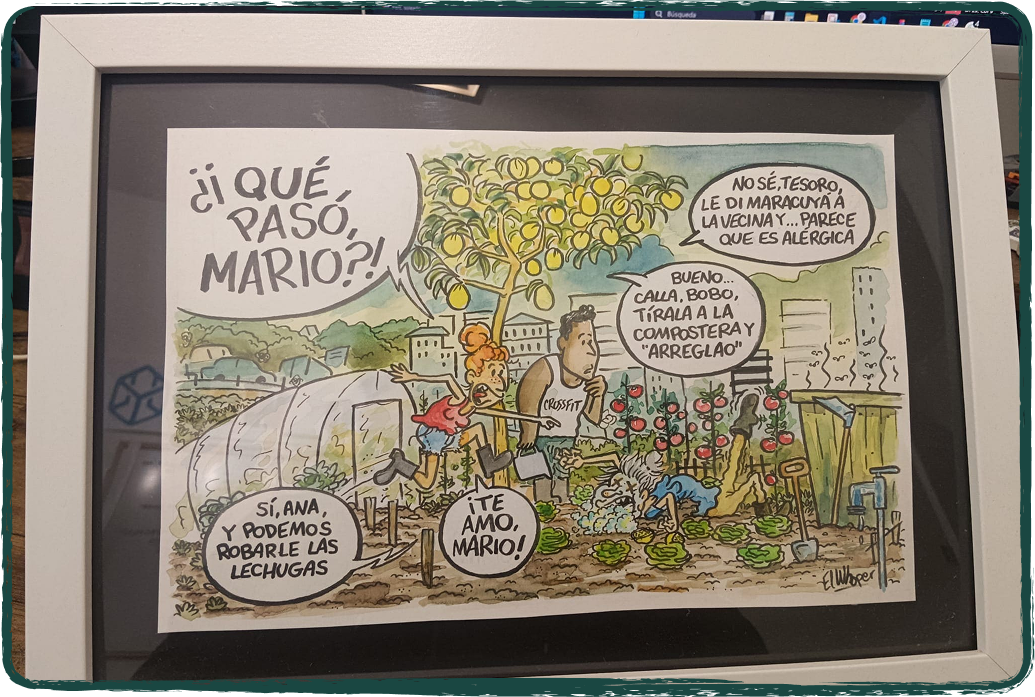 Búsqueda
¿¡QUÉ
PASÓ,
MARIO?!
NO SÉ, TESORO,
LE DI MARACUYÁ Á
LA VECINA Y... PARECE
QUE ES ALÉRGICA
BUENO...
CALLA, BOBO,
TÍRALA A LA
COMPOSTERA Y
"ARREGLAO"
CROSSFIT
SÍ, ANA,
Y PODEMOS
ROBARLE LAS
LECHUGAS
¡TE
AMO,
MARIO!